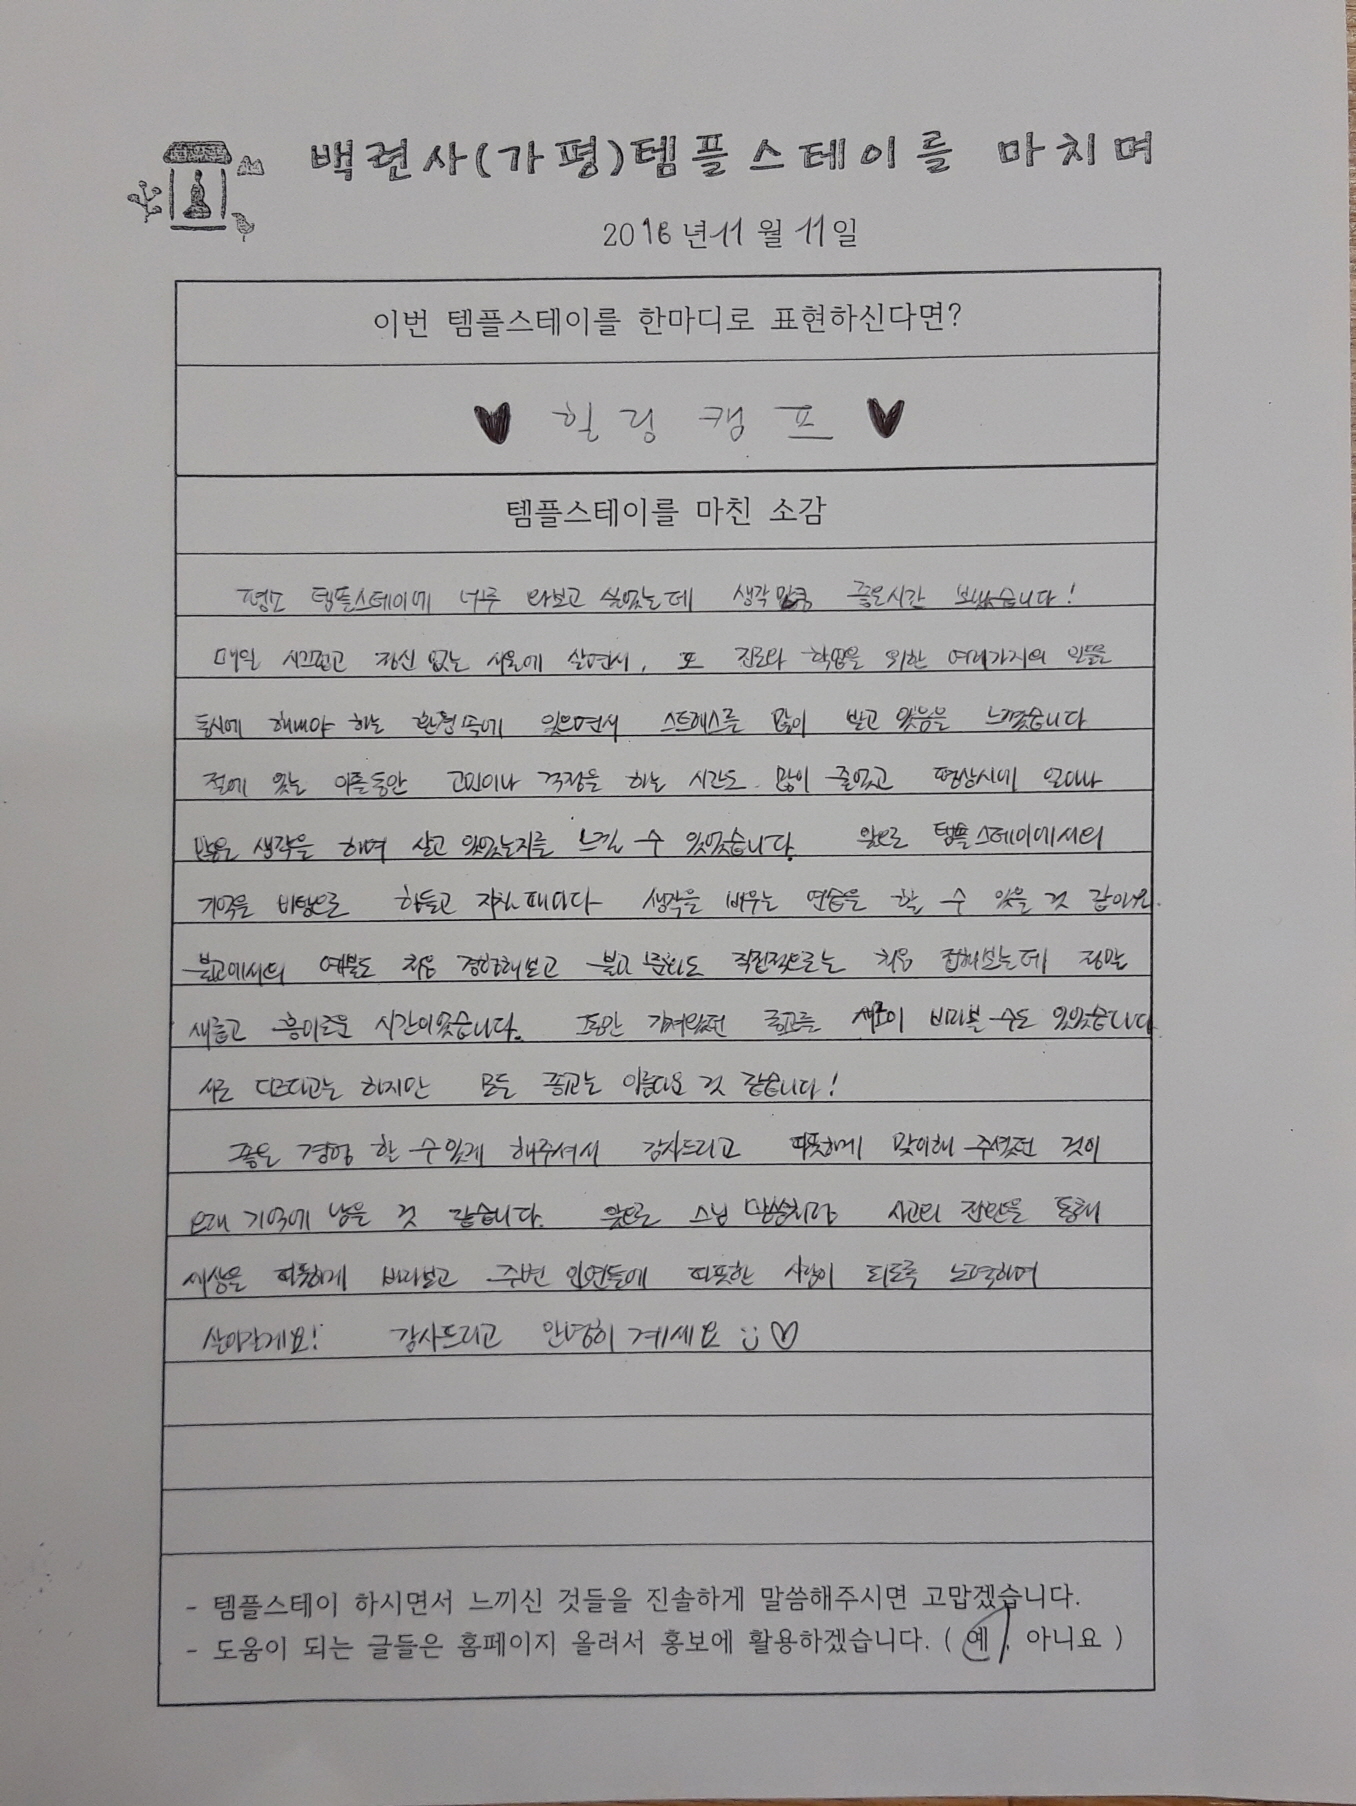 백련사(가평)템플스테이를 마치며
2016년 11월 11일
이번 템플스테이를 한마디로 표현하신다면?
♥ 힐링캠프 ♥
템플스테이를 마친 소감
평소 템플스테이에 너무 와보고 싶었는데 생각만큼 좋은시간 보냈습니다!
매일 시끄럽고 정신 없는 서울에 살면서, 또 진로와 학업을 위한 여러가지의 일들을
동시에 해내야 하는 환경속에 있으면서 스트레스를 많이 받고 있음을 느꼈습니다
절에 있는 이틀동안 고민이나 걱정을 하는 시간도 많이 줄었고 평상시에 얼마나
많은 생각을 하며 살고 있었는지를 느낄 수 있었습니다. 앞으로 템플스테이에서의
기억을 바탕으로 힘들고 지칠때마다 생각을 비우는 연습을 할 수 있을 것 같아요.
불교에서의 예불도 처음 경험해보고 불교 문화도 직접적으로는 처음 접해보는데 정말
새롭고 흥미로운 시간이었습니다. 그동안 가져왔던 종교를 새로이 바라볼 수도 있었습니다
서로 다르다고는 하지만 모든 종교는 아름다운 것 같습니다!
좋은 경험 할 수 있게 해주셔서 감사드리고 따뜻하게 맞이해 주셨던 것이
오래 기억에 남을 것 같습니다. 앞으로 스님 말씀처럼 사고의 전환을 통해
세상을 따뜻하게 바라보고 주변 인연들에 따뜻한 사람이 되도록 노력하며
살아갈게요! 감사드리고 안녕히 계세요 :) ♡
- 템플스테이 하시면서 느끼신 것들을 진솔하게 말씀해주시면 고맙겠습니다.
- 도움이 되는 글들은 홈페이지 올려서 홍보에 활용하겠습니다. ( 예 , 아니요 )